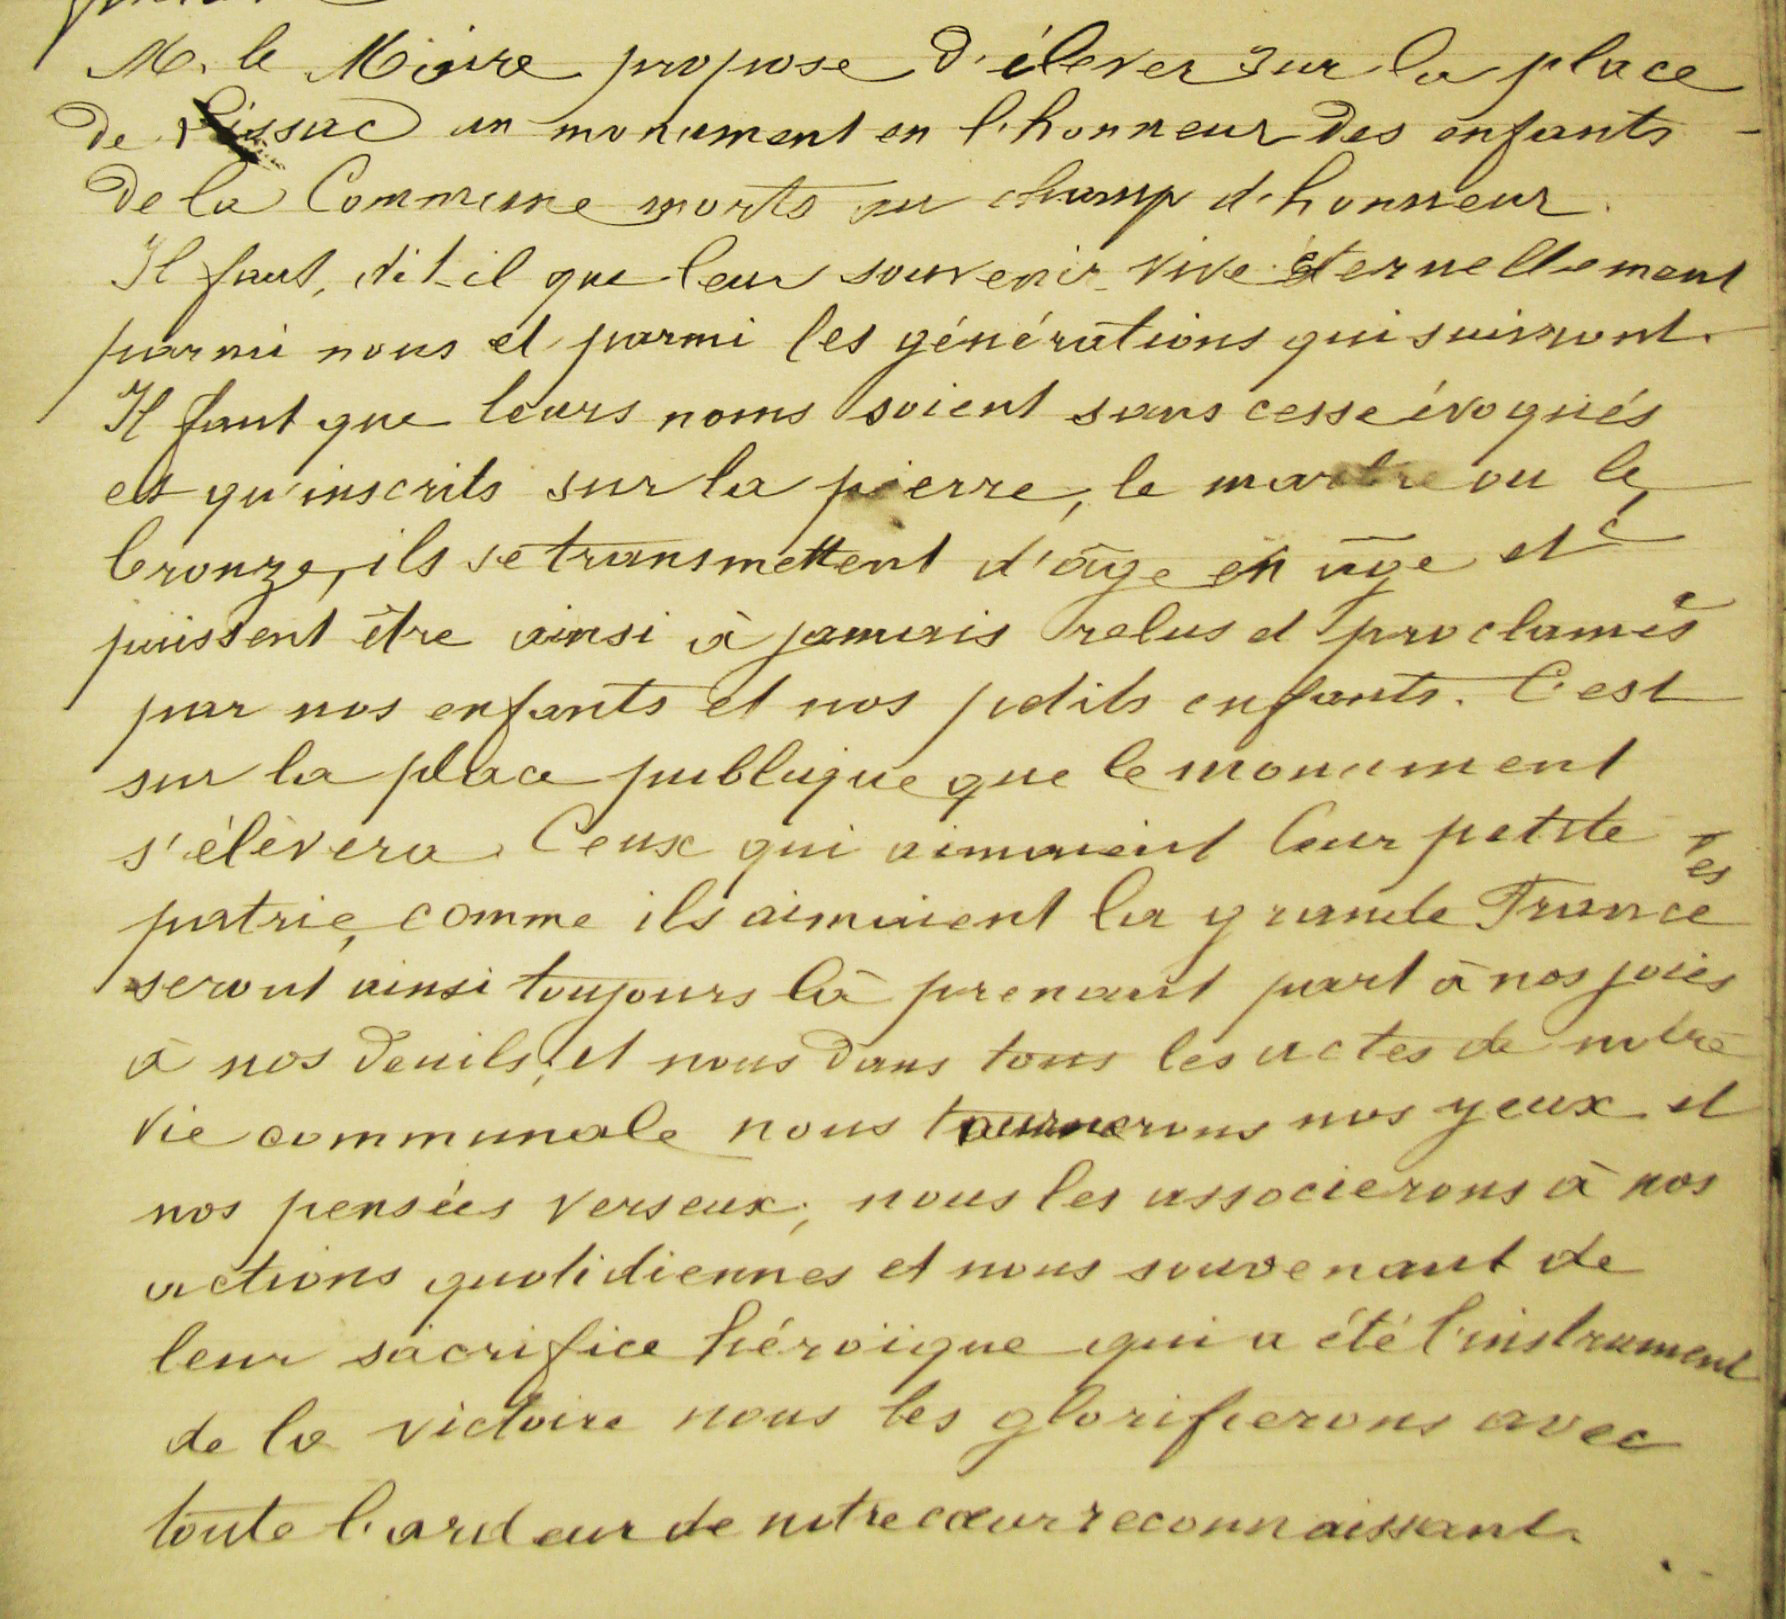 M. le Maire propose d'élever sur la place
de Lissac un monument en l'honneur des enfants
de la Commune morts au champ d'honneur.
Il faut, dit-il que leur souvenir vive éternellement
parmi nous et parmi les générations qui suivront.
Il faut que leurs noms soient sans cesse évoqués
et qu'inscrits sur la pierre, le marbre ou le
bronze, ils se transmettent d'âge en âge et
puissent être ainsi à jamais relus et proclamés
par nos enfants et nos petits enfants. C'est
sur la place publique que le monument
s'élèvera. Ceux qui aimaient leur petite
patrie, comme ils aimaient la grande France
seront ainsi toujours là prenant part à nos joies
à nos deuils; et nous dans tous les actes de notre
vie communale nous tournerons nos yeux et
nos pensées vers eux; nous les associerons à nos
actions quotidiennes et nous souvenant de
leur sacrifice héroïque qui a été l'instrument
de la victoire nous les glorifierons avec
toute l'ardeur de notre cœur reconnaissant.